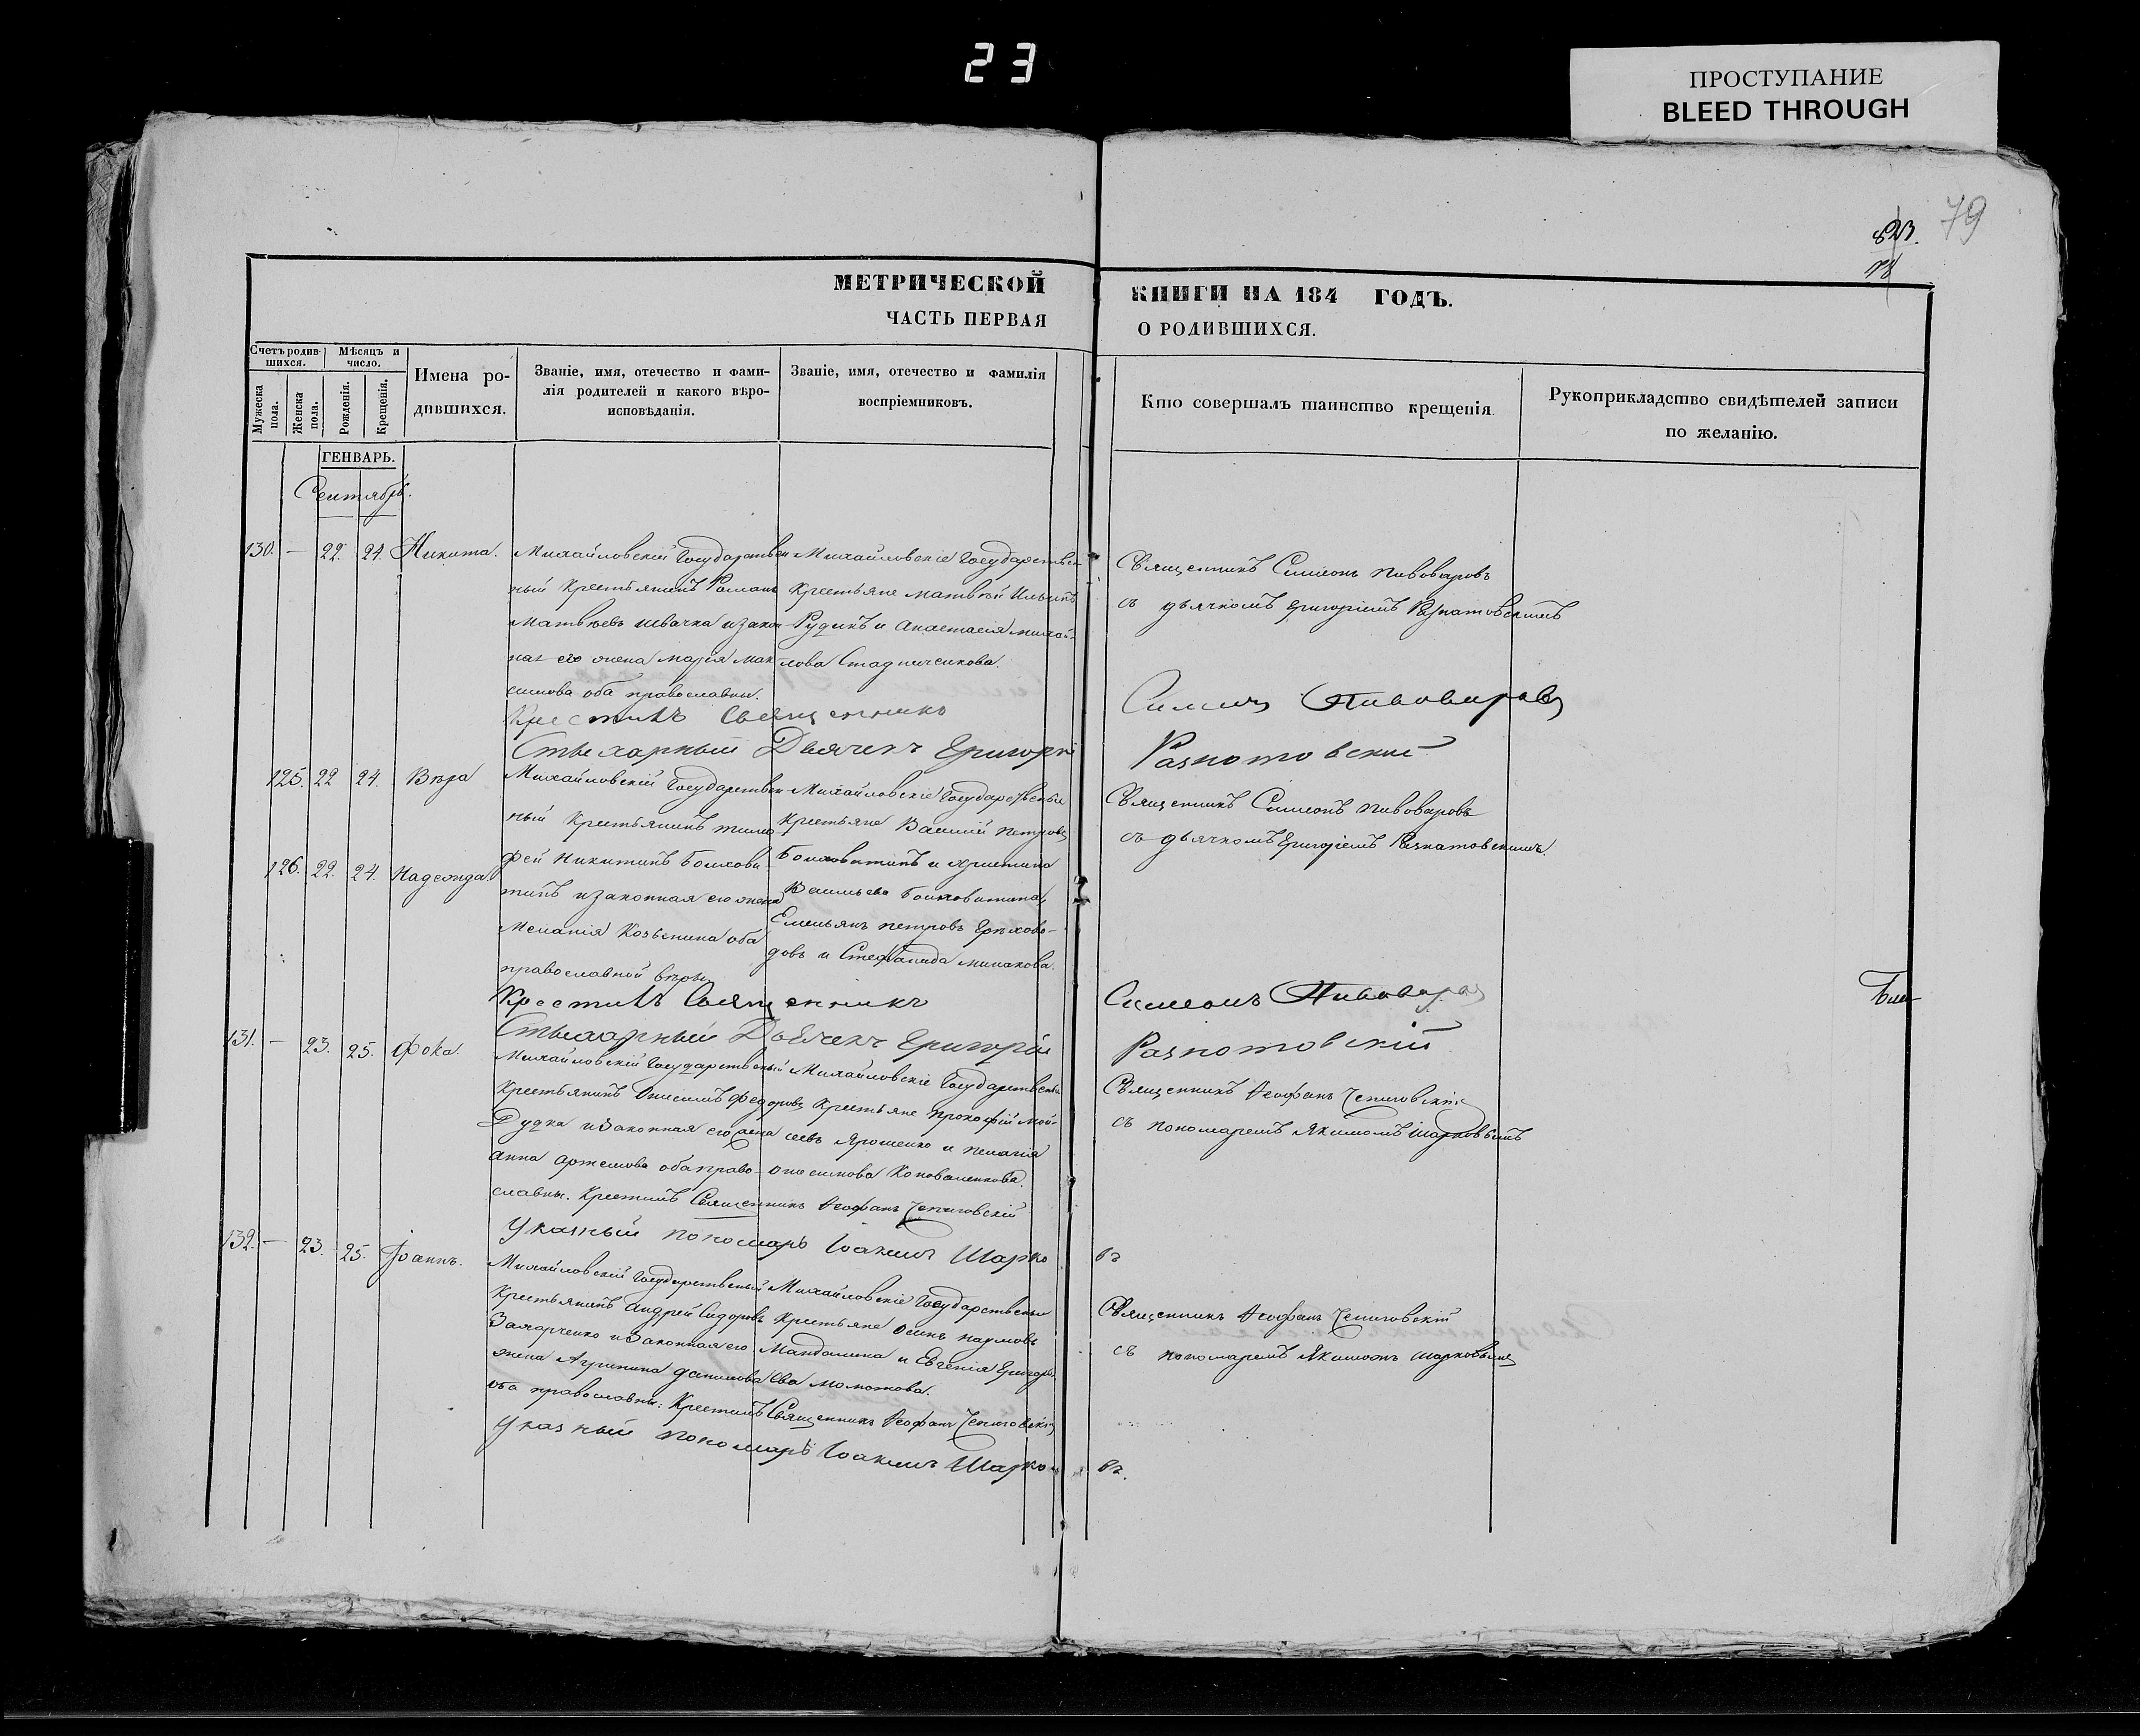 23
ПРОСТУПАНИЕ
BLEED THROUGH
79
823.
МЕТРИЧЕСКОЙ КНИГИ НА 184 ГОДЪ.
ЧАСТЬ ПЕРВАЯ О РОДИВШИХСЯ.
Счетъ родившихся.
Мѣсяцъ и число.
Мужеска пола.
Женска пола.
Рожденія.
Крещенія.
Имена родившихся.
Званіе, имя, отечество и фамилія родителей и какого вѣроисповѣданія.
Званіе, имя, отечество и фамилія воспріемниковъ.
Кто совершалъ таинство крещенія.
Рукоприкладство свидѣтелей записи по желанію.
ГЕНВАРЬ.
Сентябрь.
130. — 22. 24. Никита.
Михайловскій Государствен
ный Крестьянинъ Романъ
Матвѣевъ Швачка и закон
ная его жена Марія Мак
симова оба православны.
Михайловскіе Государствен
Крестьяне Матвѣй Ильинъ
Рудикъ и Анастасія Михай-
лова Стадниченкова.
Священникъ Симеонъ Пивоваровъ
съ дьячкомъ Григоріемъ Разнатовскимъ
Крестилъ Священникъ Симеонъ Пивоваровъ
Стихарный Дьячекъ Григорій Разнотовскій
125. 22 24. Вѣра
126. 22. 24. Надежда.
Михайловскій Государствен
ный Крестьянинъ Тимо
фей Никитинъ Болхови
тинъ и законная его жена
Меланія Козьмина оба
православной вѣры
Михайловскіе Государственные
Крестьяне Василій Петровъ
Болховитинъ и Христина
Васильева Болховитина,
Емельянъ Петровъ Грѣхово-
довъ и Стефанида Минакова.
Священникъ Симеонъ Пивоваровъ
съ дьячкомъ Григоріемъ Разнатовскимъ.
Крестилъ Священникъ Симеонъ Пивоваровъ
Стихарный Дьячекъ Григорій Разнотовскій
131. — 23. 25. Фока.
Михайловскій Государственный
Крестьянинъ Онисимъ Федоровъ
Дудка и законная его жена
Анна Артемова оба право-
славны.
Михайловскіе Государственные
Крестьяне Прокофій Мой-
сеевъ Ярошенко и Пелагія
Онисимова Коноваленкова.
Священникъ Феофанъ
съ пономаремъ Якимомъ Шарковымъ
Крестилъ Священникъ Феофанъ
Указный пономарь Іоакимъ Шарковъ
132. — 23. 25. Іоаннъ.
Михайловскій Государственный
Крестьянинъ Андрей Сидоровъ
Захарченко и законная его
жена Агрипина Данилова
оба православны.
Михайловскіе Государственные
Крестьяне Осипъ Наумовъ
Мандалина и Евгенія Григорь
ева Момотова.
Священникъ Феофанъ
съ пономаремъ Якимомъ Шарковымъ
Крестилъ Священникъ Феофанъ
Указный пономарь Іоакимъ Шарковъ.